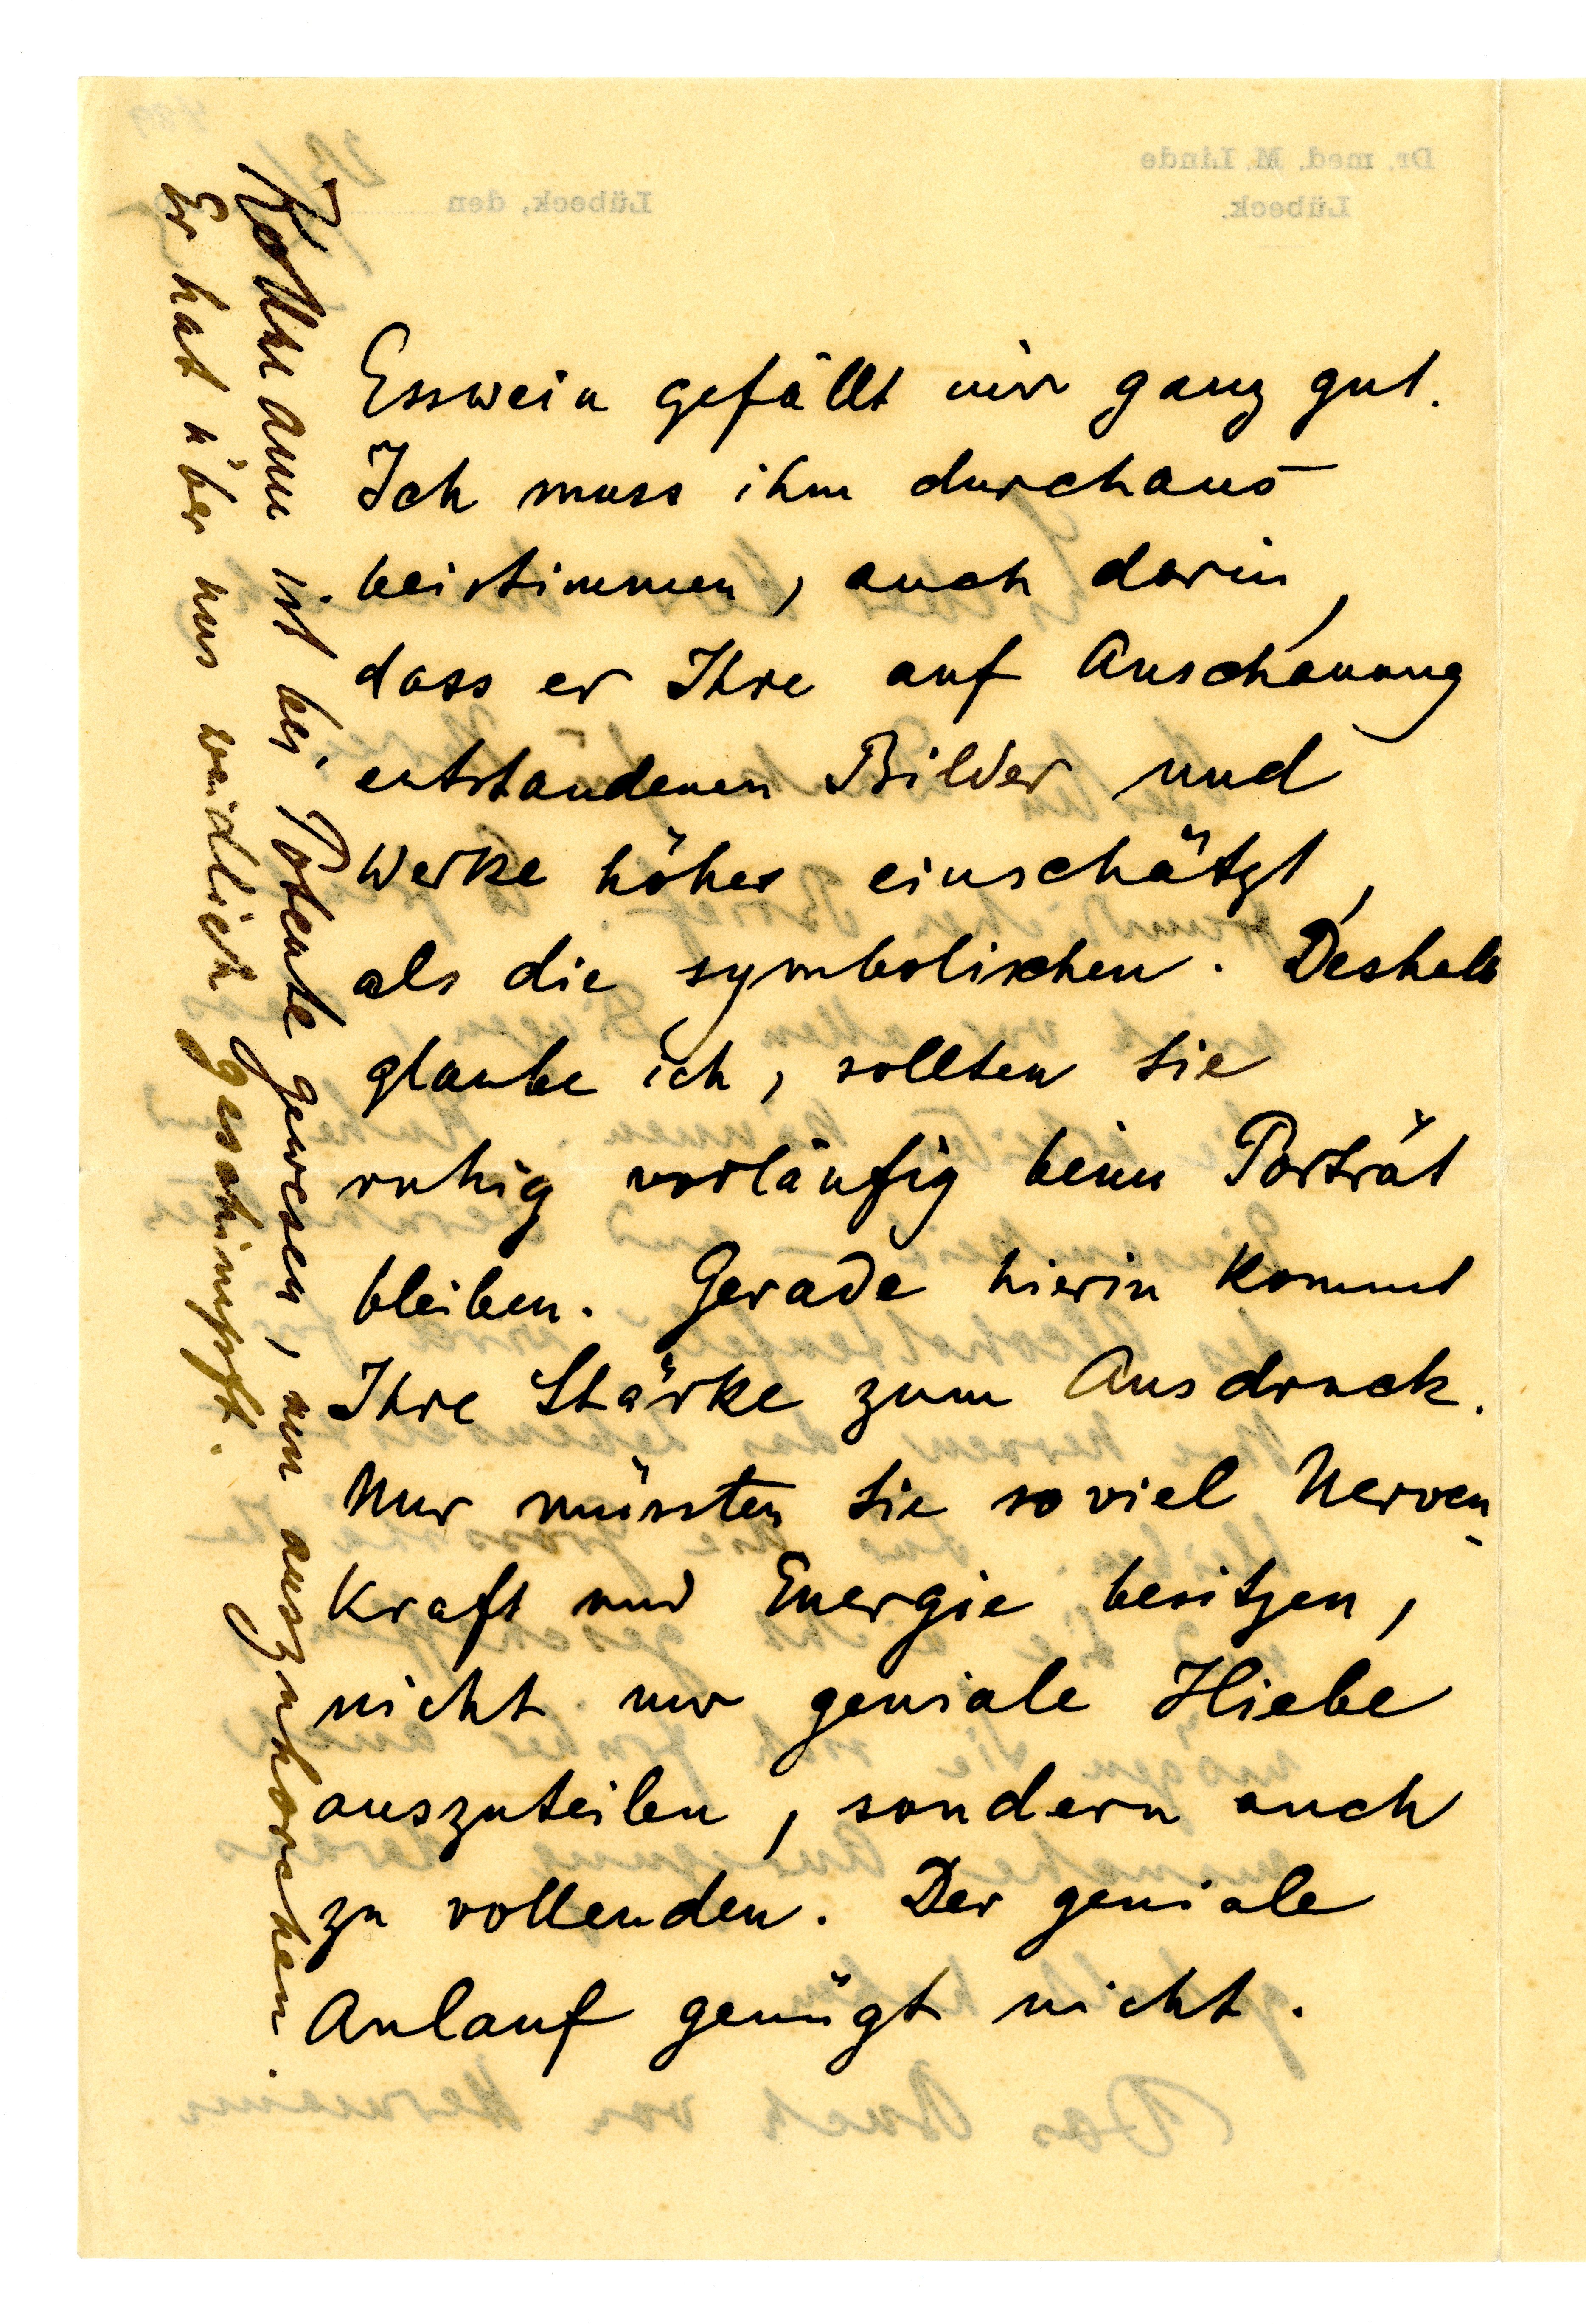 Esswein gefällt mir ganz gut.
Ich muss ihm durchaus
beistimmen, auch darin,
dass er Ihre auf Anschauung
entstandenen Bilder und
Werke höher einschätzt,
als die symbolischen. Deshalb
glaube ich, sollten Sie
ruhig vorläufig beim Porträt
bleiben. Gerade hierin kommt
Ihre Stärke zum Ausdruck.
Nur müssten Sie soviel Nerven-
kraft und Energie besitzen,
nicht nur geniale Hiebe
auszuteilen, sondern auch
zu vollenden. Der geniale
Anlauf genügt nicht.
Kollmann ist bei Potente gewesen, um auszuhorchen.
Er hat über uns weidlich geschimpft.
Dr. med. M. Linde
Lübeck.
Lübeck, den
Das Buch von Hermann